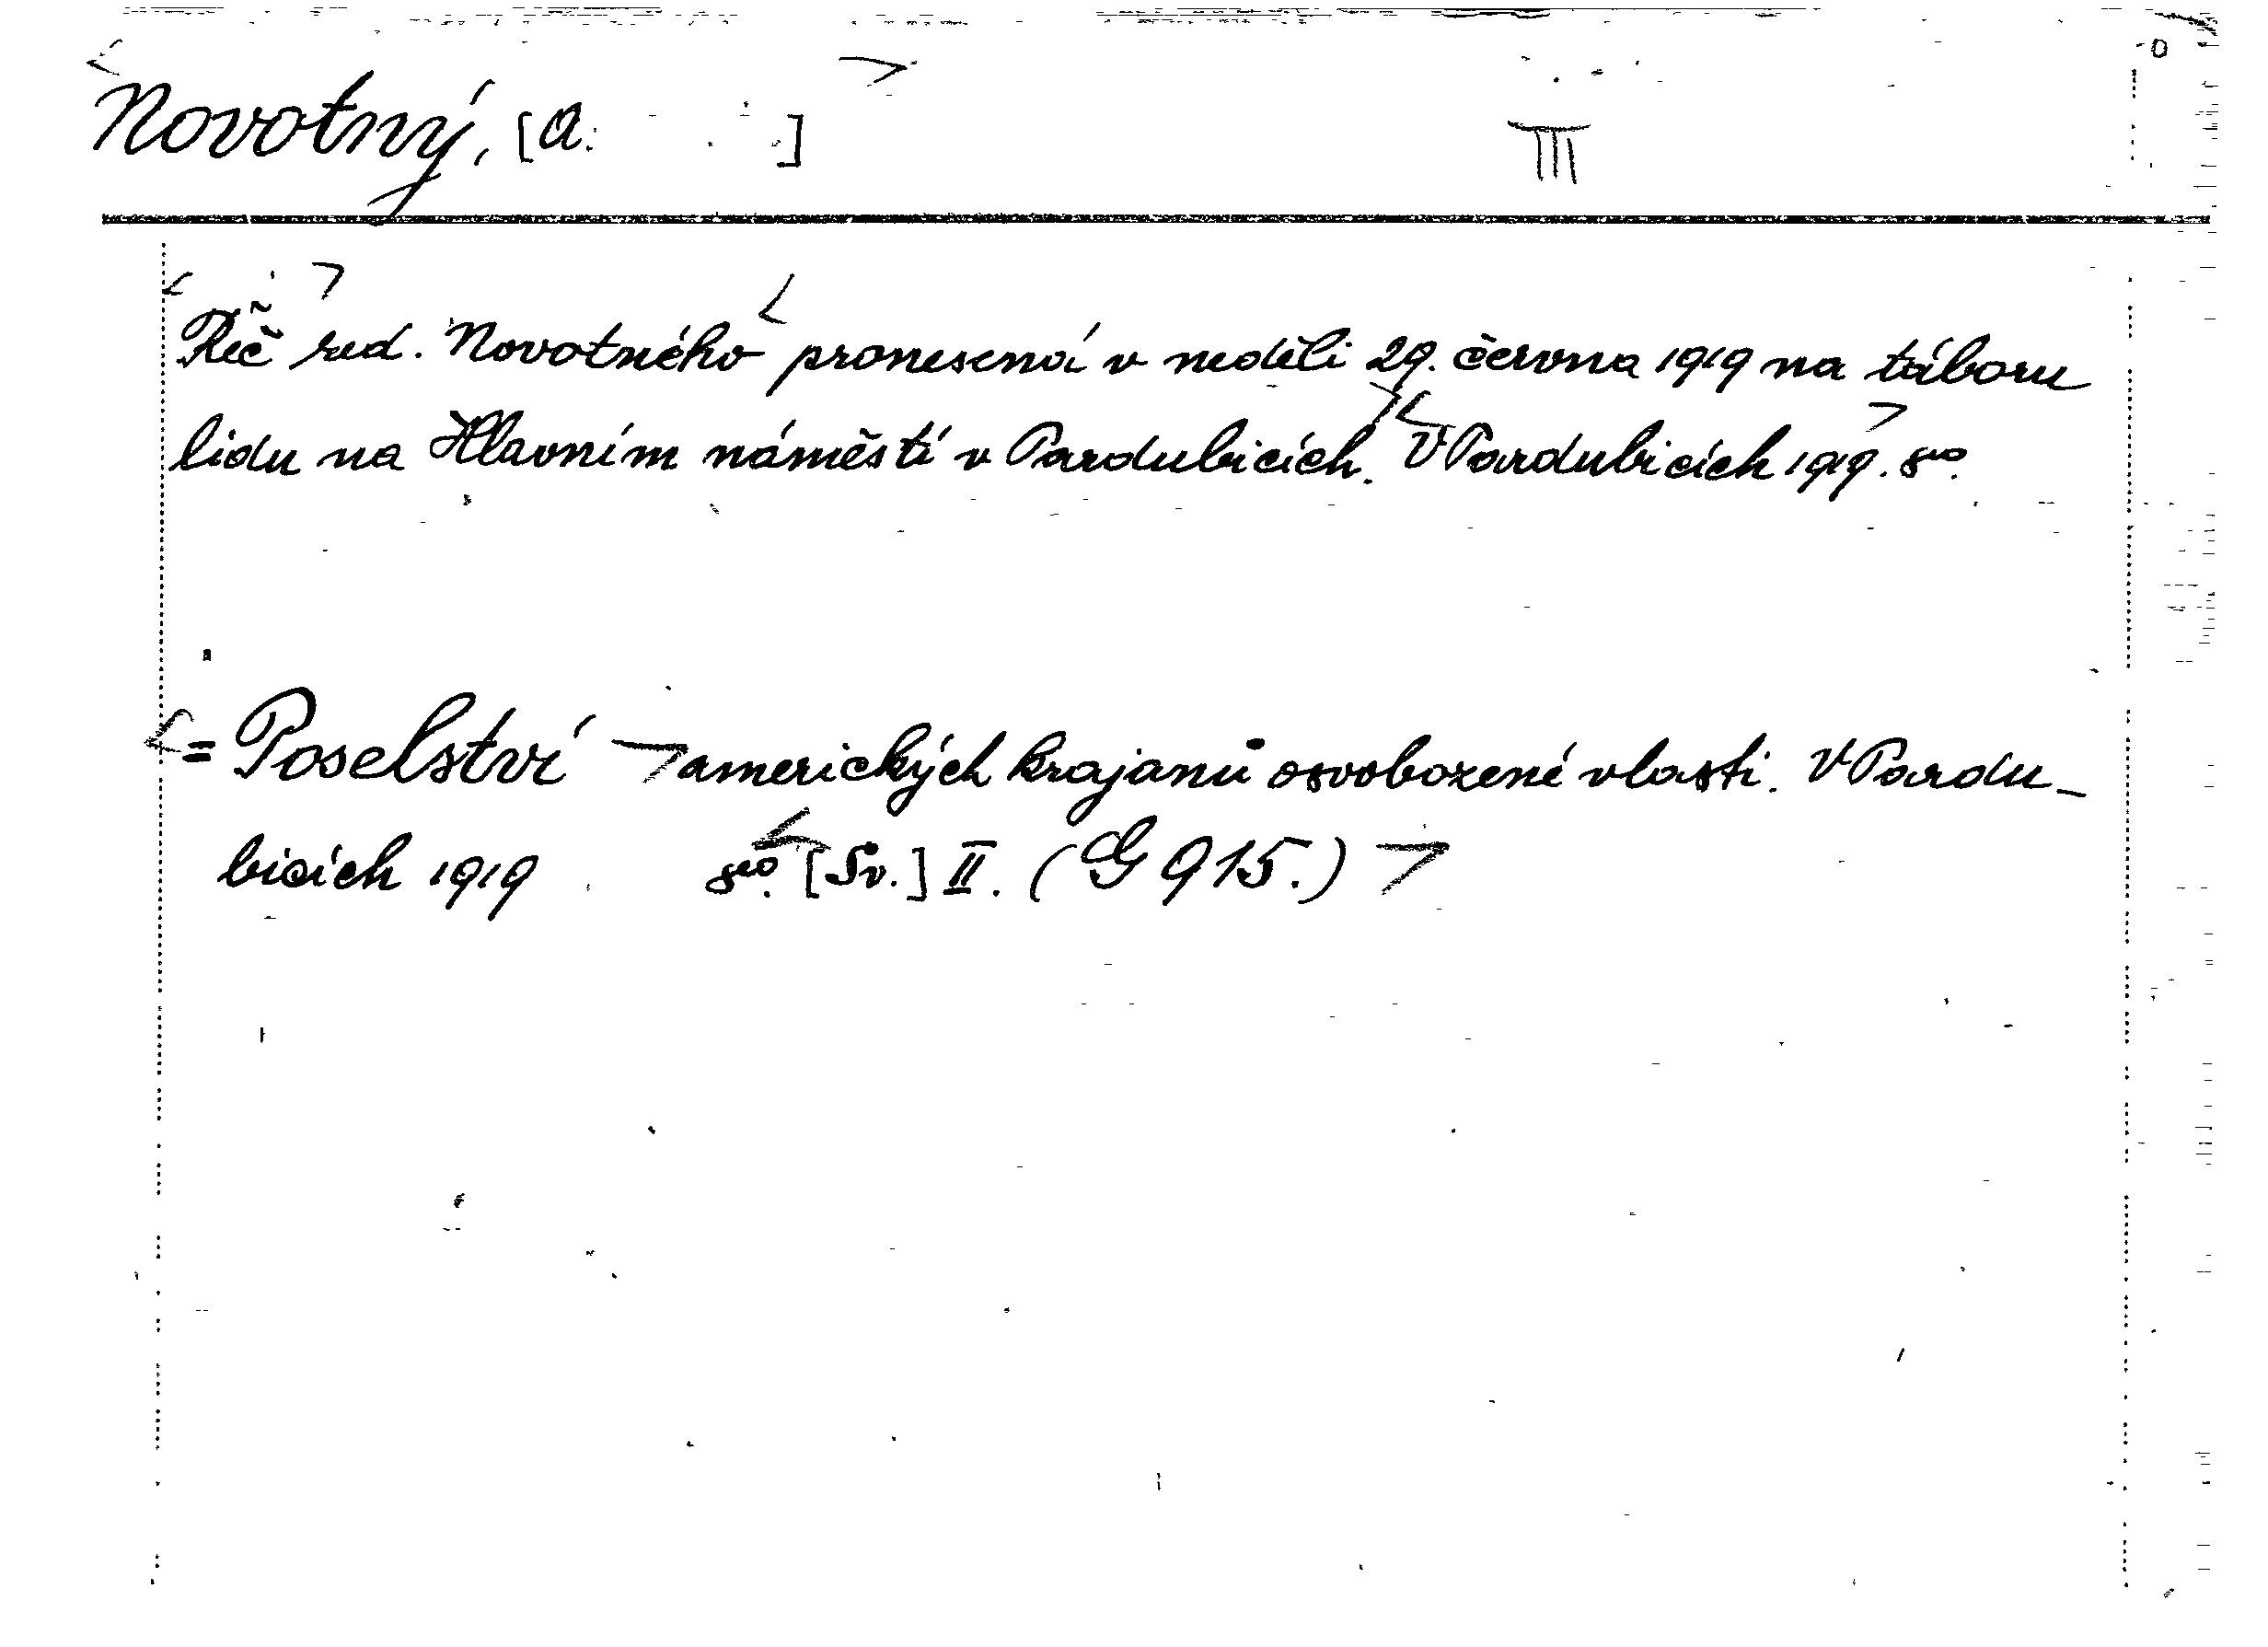 Novotný, [A. ] III
Řeč red. Novotného pronesená v neděli 29. června 1919 na táboru
lidu na Hlavním náměstí v Pardubicích. V Pardubicích 1919. 8º.
= Poselství amerických krajanů osvobozené vlasti. V Pardu-
bicích 1919 8º. [Sv.] II. (G 915.)